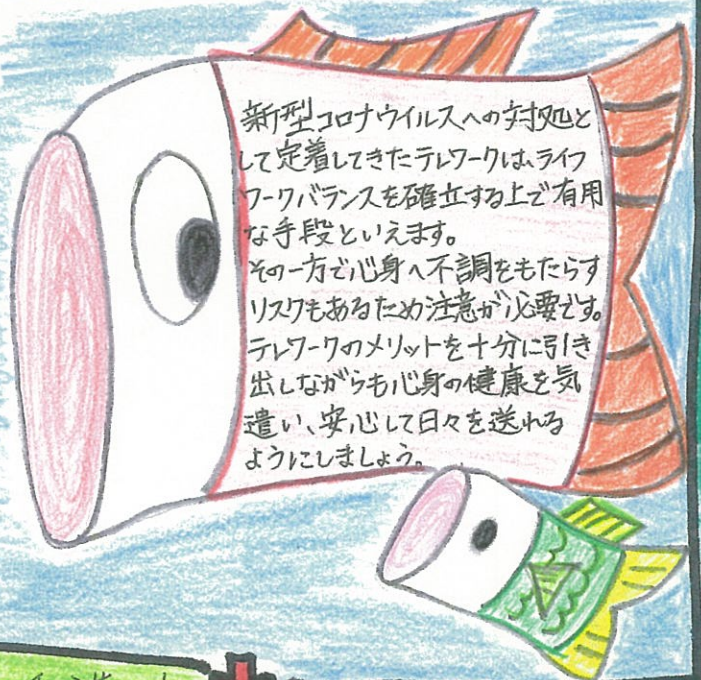 新型コロナウイルスへの対処と
して定着してきたテレワークは、ライフ
ワークバランスを確立する上で有用
な手段といえます。
その一方で心身へ不調をもたらす
リスクもあるため注意が必要です。
テレワークのメリットを十分に引き
出しながらも心身の健康を気
遣い、安心して日々を送れる
ようにしましょう。